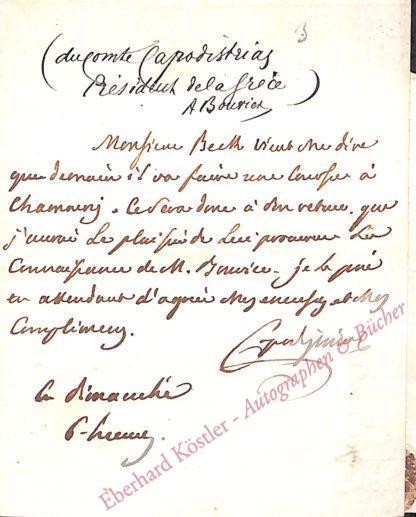 (du comte Capodistrias
Président de la Grèce)
A Bouvier
3
Monsieur Beck vient me dire
que demain il va faire une course à
Chamouni. Ce sera donc à son retour que
j'aurai le plaisir de lui procurer la
connaissance de M. Bouvier - je le prie
en attendant d'agréer mes excuses et mes
complimens.
Capodistrias
ce dimanche
6 heures
Eberhard Köstler - Autographen & Bücher